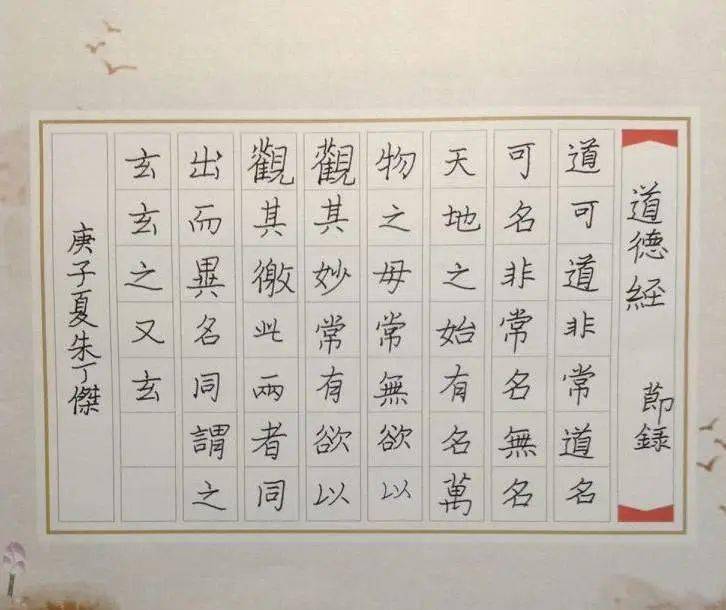 道德經 節錄
道可道非常道名
可名非常名無名
天地之始有名萬
物之母常無欲以
觀其妙常有欲以
觀其徼此兩者同
出而異名同謂之
玄玄之又玄
庚子夏朱丁傑